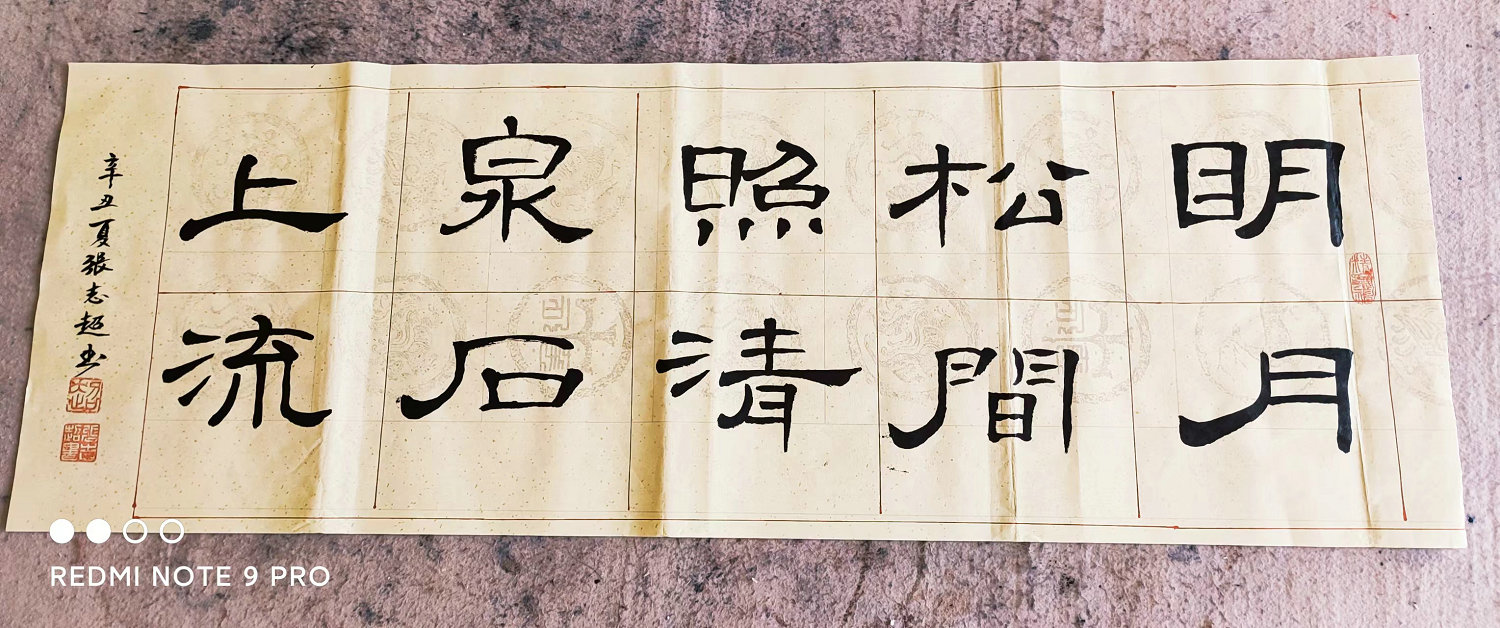 明月
松間
照清
泉石
上流
辛丑夏張志超书
REDMI NOTE 9 PRO